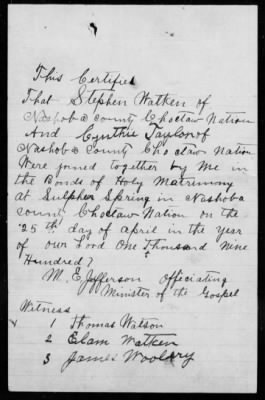 This Certifies
That Stephen Watken of
Nashoba county Choctaw Nation
And Cynthie Taylor of
Nashoba county Choctaw Nation
Were joined together by Me in
the Bonds of Holy Matrimony
at Sulpher Spring in Nashoba
county Choctaw Nation on the
25th day of april in the year
of our Lord One Thousand Nine
Hundred?
M. E Jefferson Officiating
Minister of the Gospel
Witness
1 Thomas Watson
2 Elam Watken
3 James Woolery